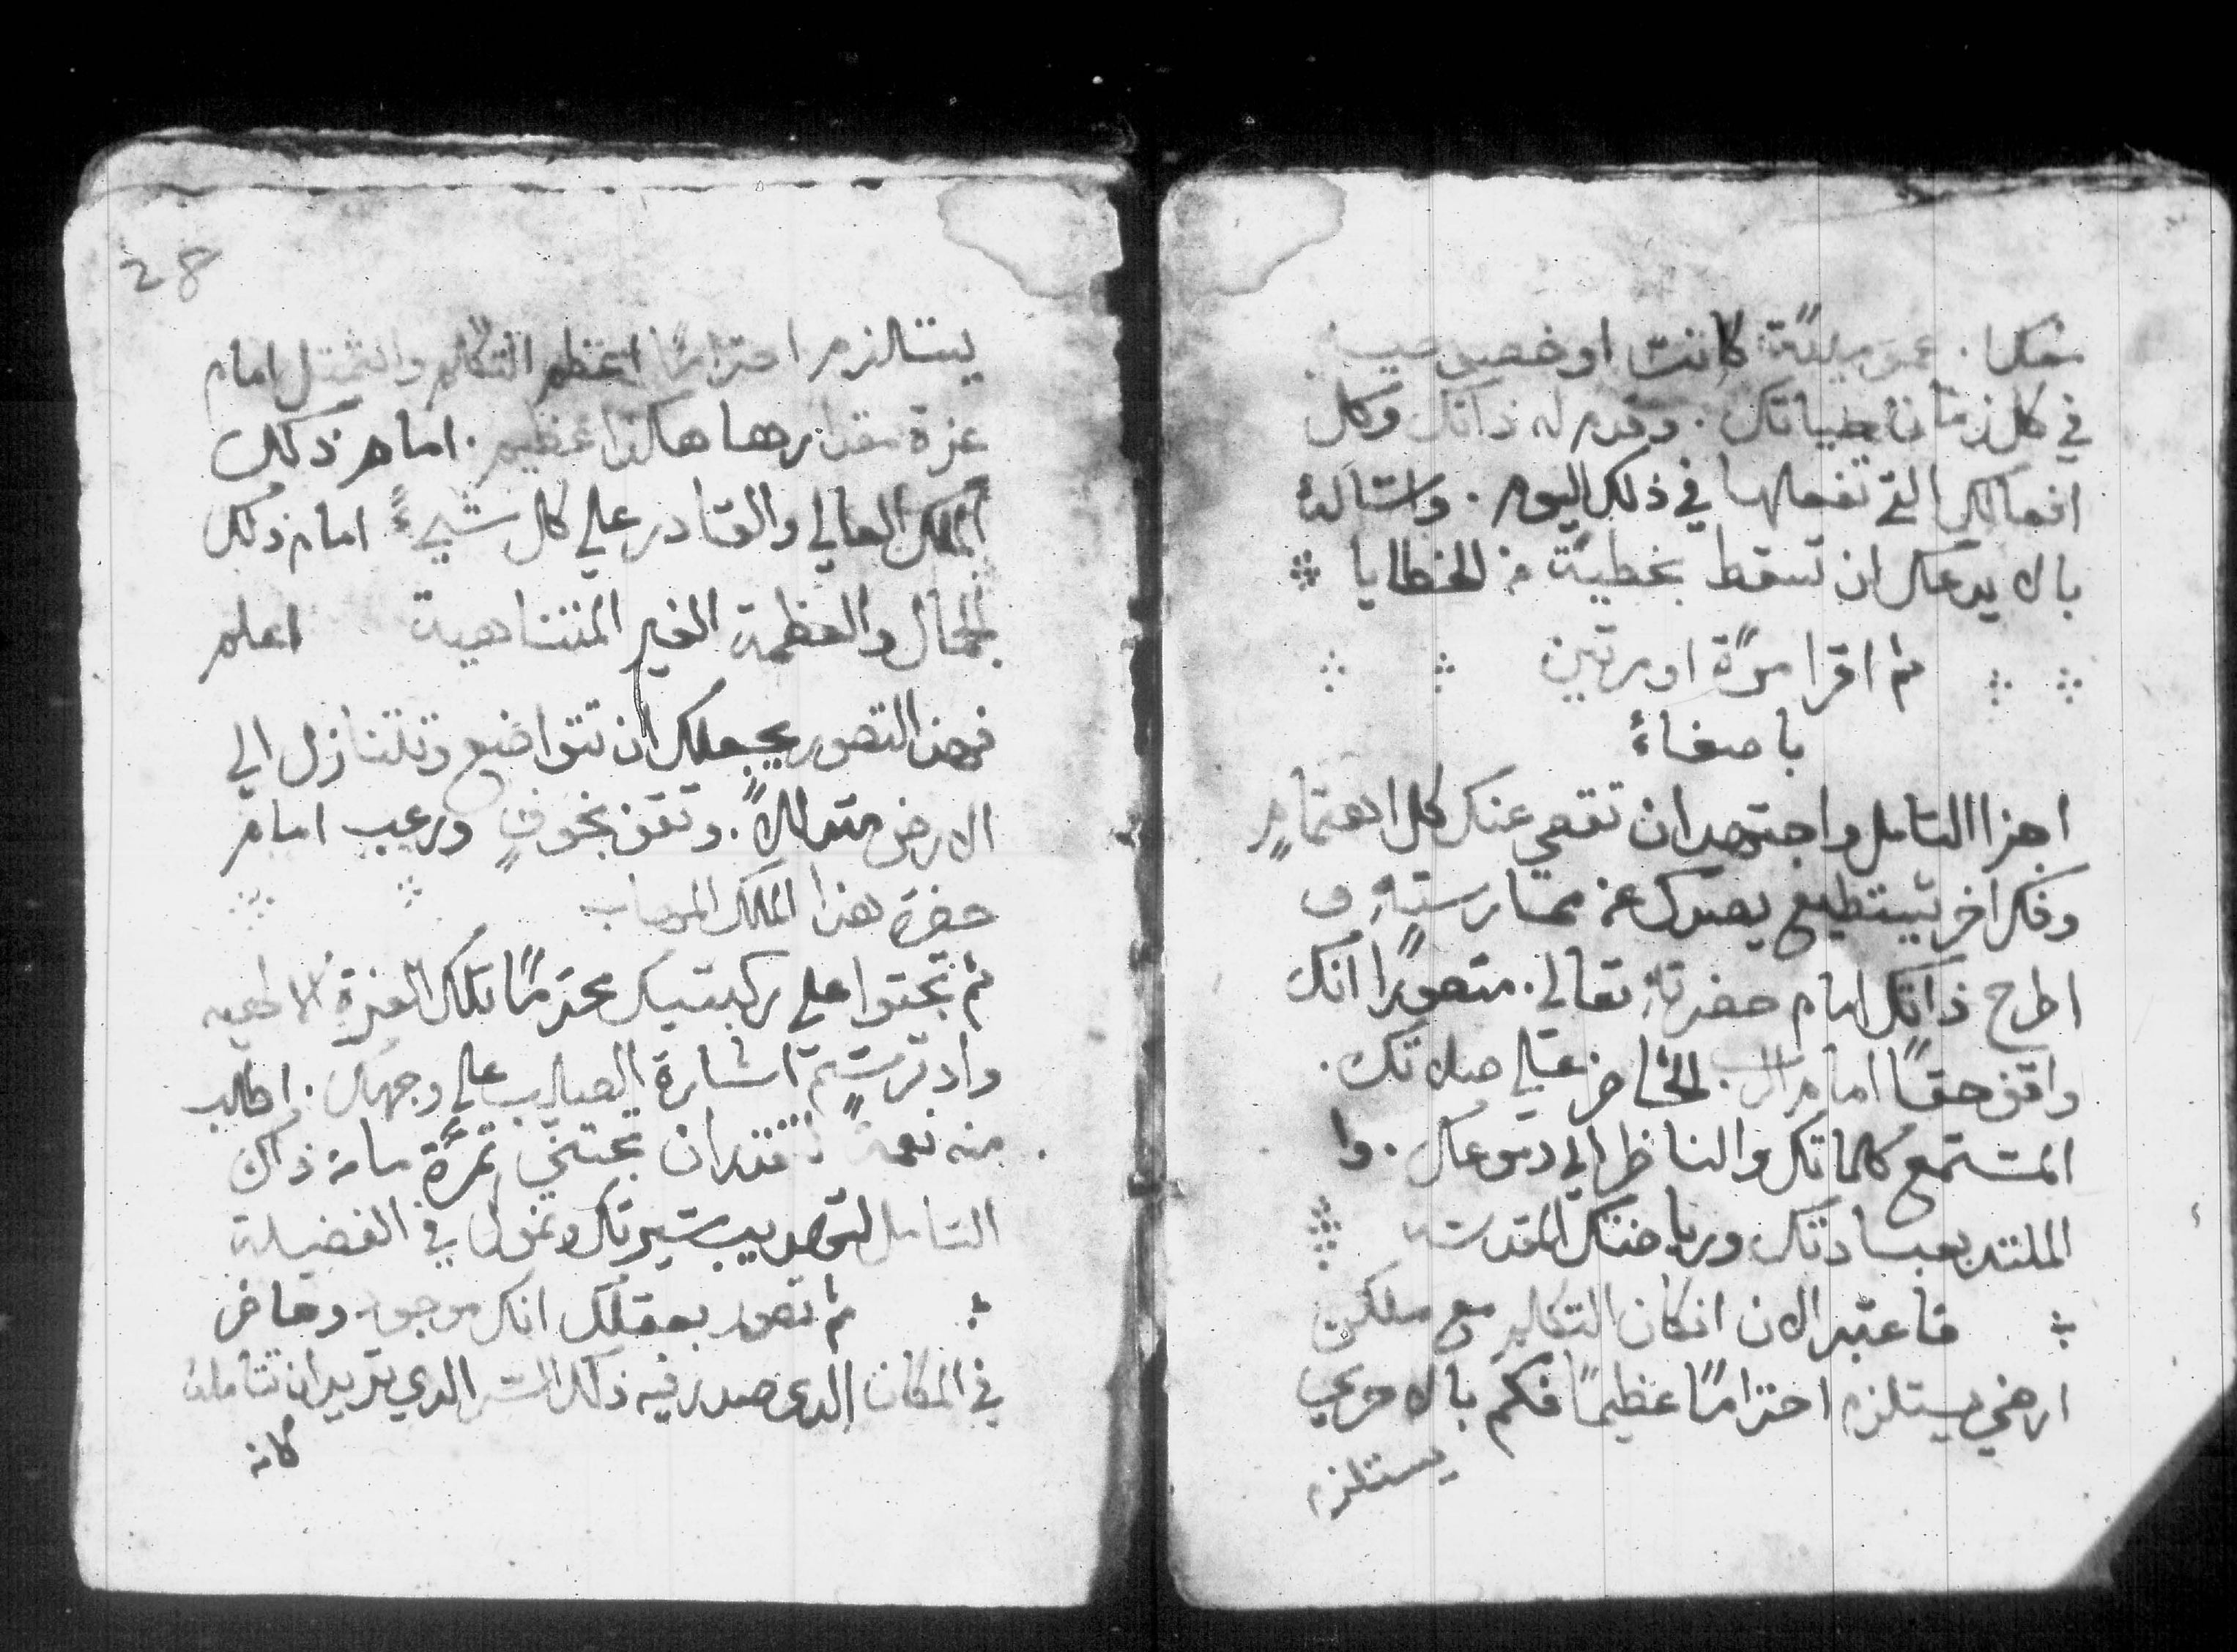 منك. عموميةً كانت او خصوصية
في كل زمان حياتك. وقدم له ذاتك وكل
افعالك التي تفعلها في ذلك اليوم. واسَالهُ
بالا يدعك ان تسقط بخطيةٍ من الخطايا
ثم اقرا مرةً او مرتين
باصغاءً
اجزا التامل واجتهد ان تقصي عنك كل اهتمامٍ
وفكر اخر يستطيع يصدك عن ممارسته. و
اطرح ذاتك امام حضرته تعالي. متصورًا انك
واقف حقًا امام الرب. الحاضر علي صلاتك.
المستمع كلماتك والناظر الي دموعك. وا
الملتذ بعبادتك ورياضتك المقدسه
فاعتبر الان انكان التكلم مع ملكٍ
ارضي يستلزم احترامًا عظيمًا فكم بالاحري
يستلزم
28
يستالزم احترامًا اعظم التكلم والتمثل امام
عزة مقدارها هاكذا عظيم. امام ذلك
الملك العالي والقادر علي كل شيءً امام ذلك
الجمال والعظمة الغير المتناهية اعلم
فهذا التصور يجعلك ان تتواضع وتتنازل الي
الارض متذللاً. وتقف بخوفٍ ورعب امام
حضرة هذا الملك المهاب
ثم تجتوا علي ركبتيك محترمًا تلك العزة الالاهيه
واد ترسم اشارة الصليب علي وجهك. اطلب
منه نعمةً لتقتدر ان تجتني ثمرةً ما من ذاك
التامل لتهديب سيرتك ونموك في الفضيلة
ثم تصور بعقلك انك موجود وحاضر
في المكان الدي صدر فيه ذلك السر الدي تريد ان تتاملهُ
كانه